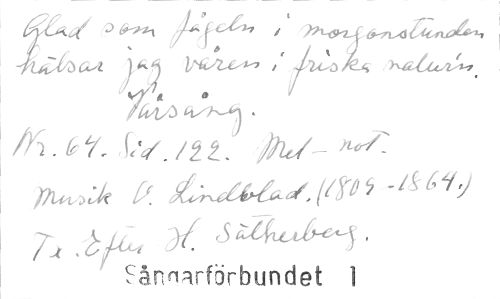 Glad som fågeln i morgonstunden
hälsar jag våren i friska natur'n.
Vårsång.
Nr. 64. Sid. 122. Mel-not.
Musik O. Lindblad. (1809-1864.)
Tx. Efter H. Sätherberg.
Sångarförbundet 1